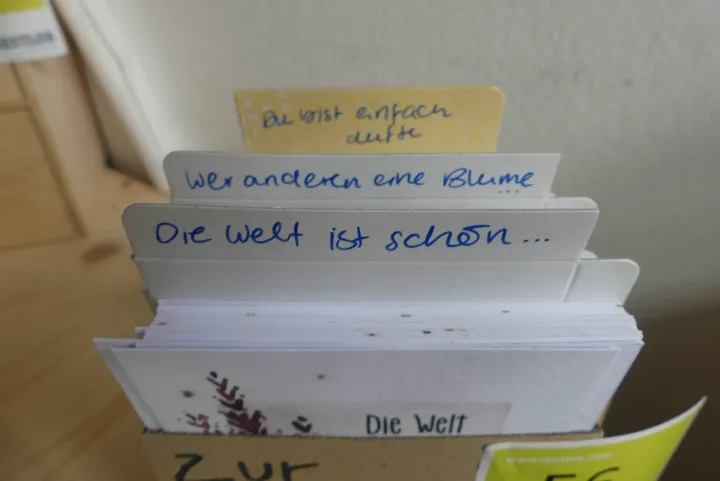 Du bist einfach
dufte
Wer anderen eine Blume...
Die Welt ist schön...
Die Welt
Zur
56